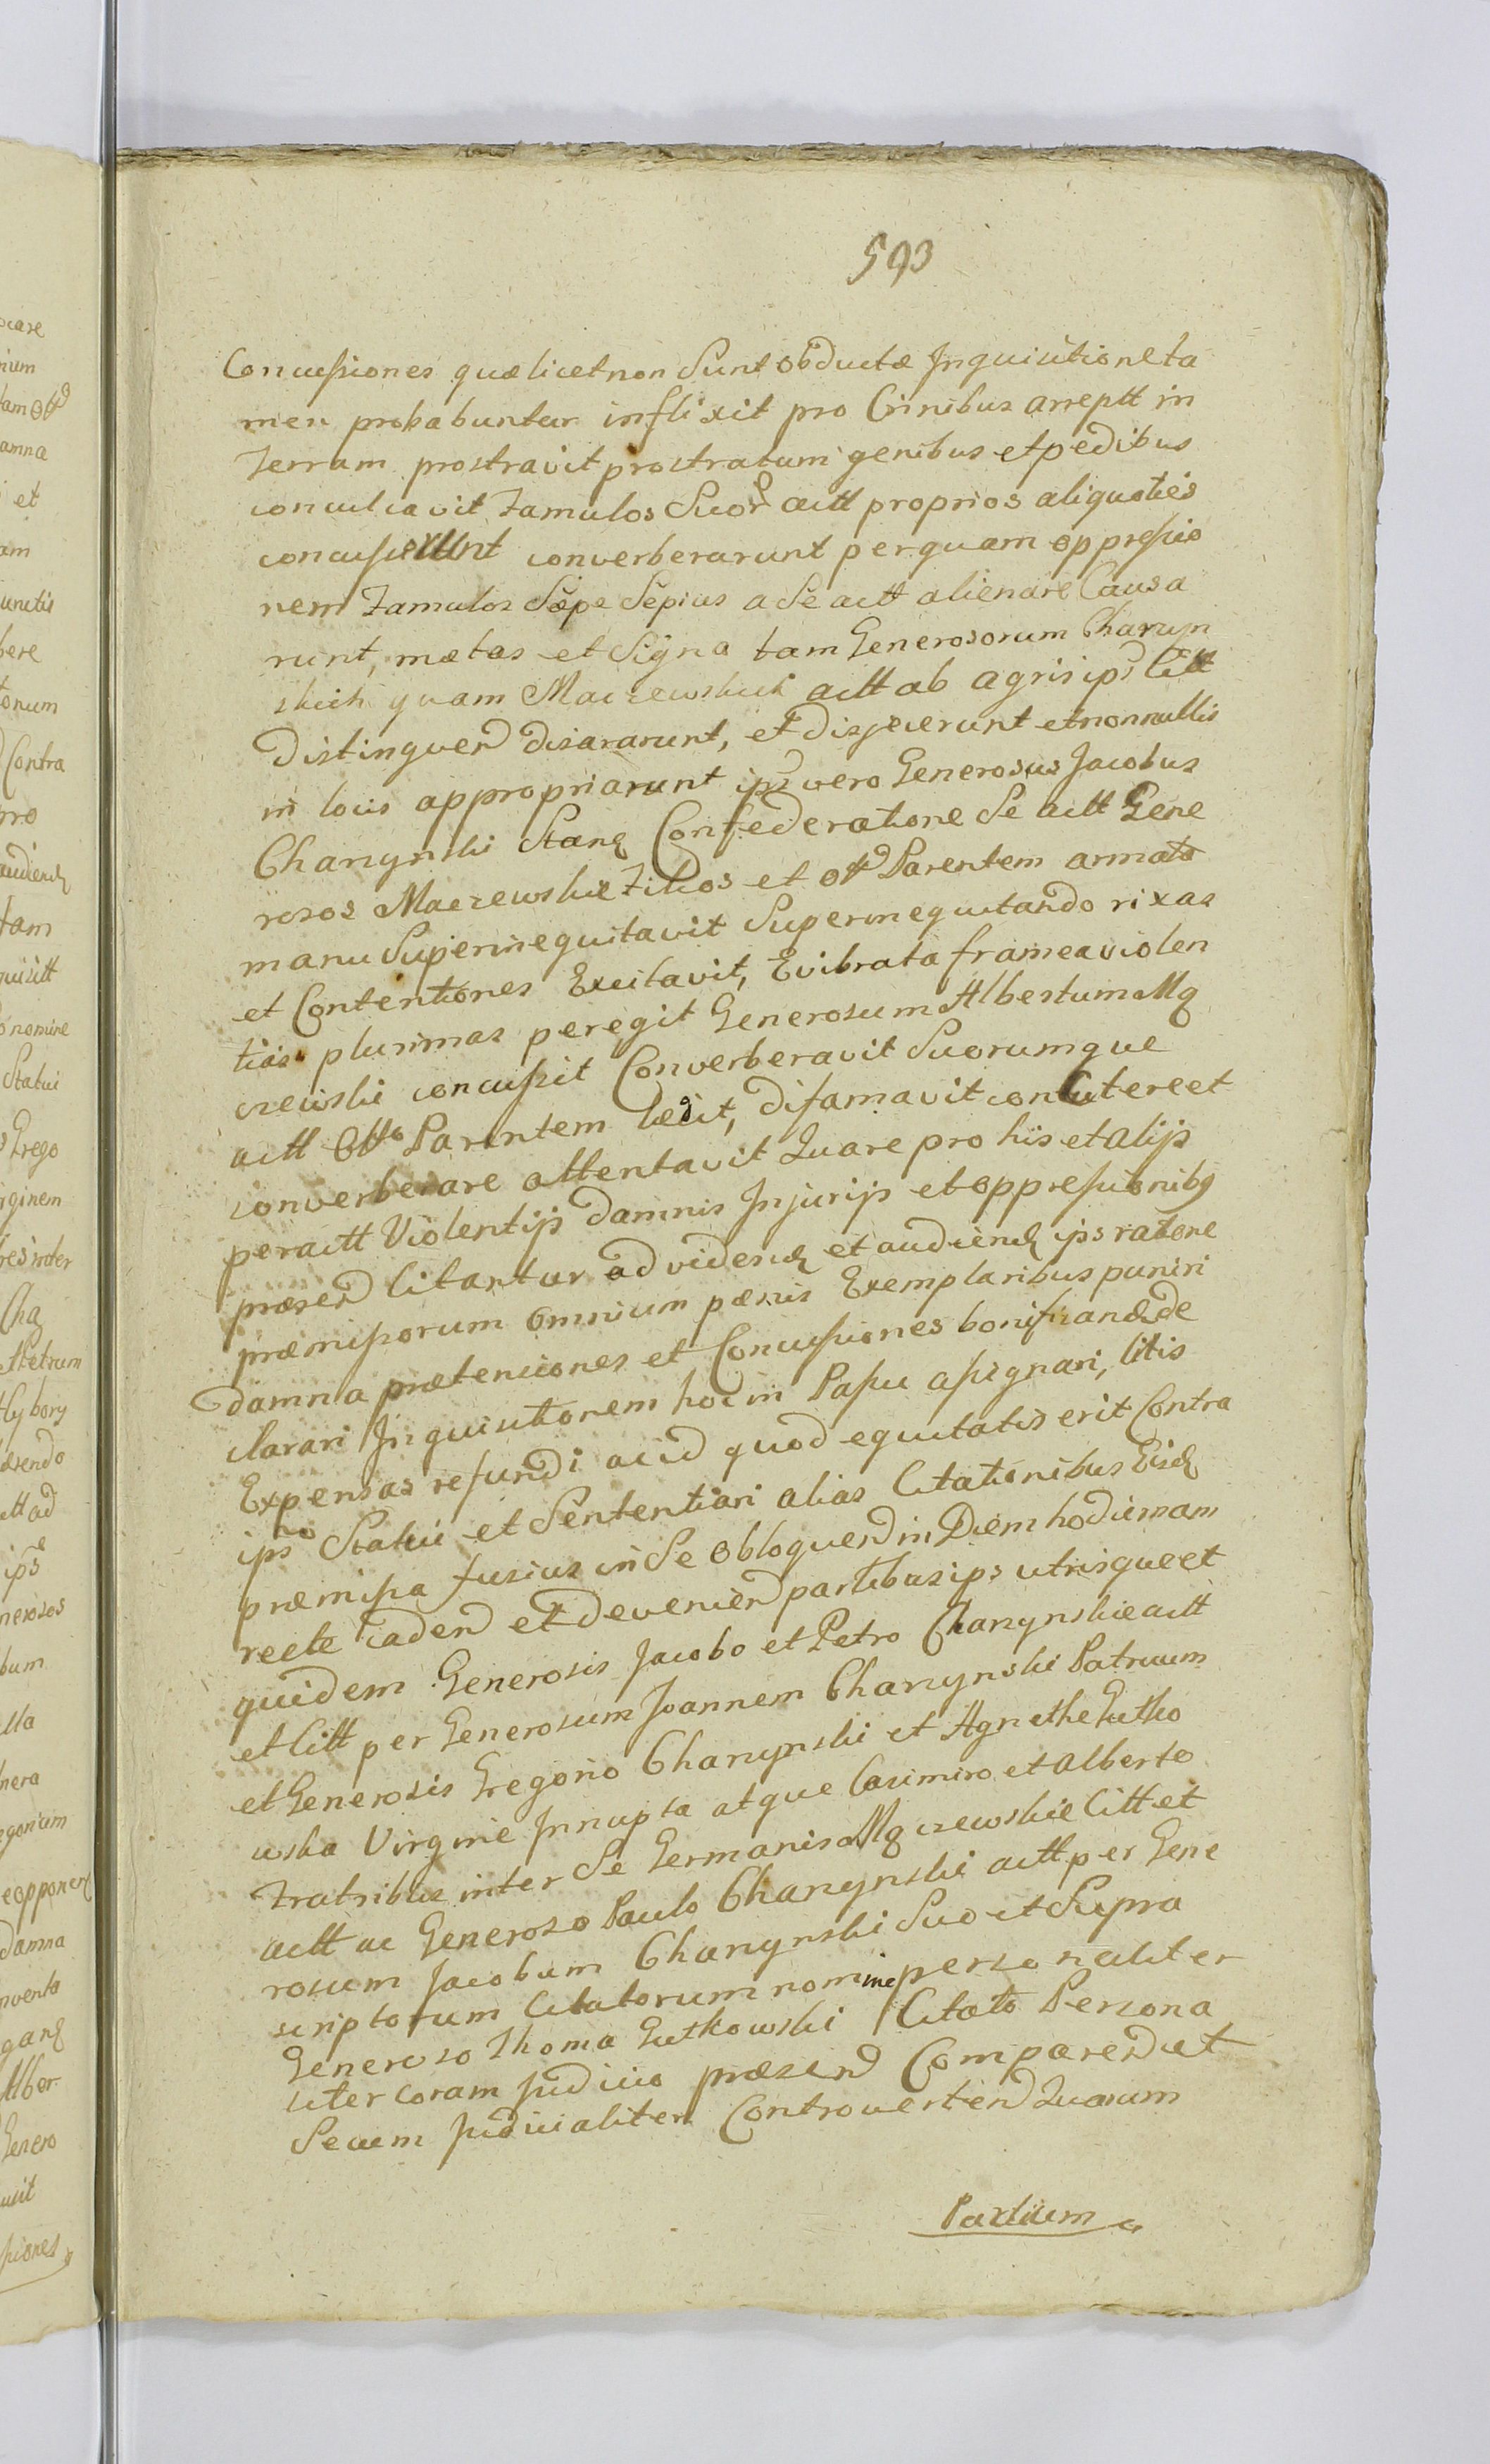 593
Concussiones quæ licet non Sunt obductæ Inquisitione ta
men probabuntur inflixit pro Crinibus arreptt in
Terram prostravit prostratum genibus et pedibus
conculcavit Famulos Suor actt proprios aliquoties
concusserunt converberarunt per quam oppressio
nem Famulos Sæpe Sepius a Se actt alienare Causa
runt, metas et Signa tam Generosorum Charzyn
skich quam Maczewskich actt ab agris ips Citt
distinguen disararunt, et disjecerunt et nonnullis
in locis appropriarunt ips vero Generosus Jacobus
Charzynski Stan Confederatione Se actt Gene
rosos Maczewskie Filios et ott Parentem armata
manu Superinequitavit Superinequitando rixas
et Contentiones Excitavit, Evibrata framea violen
tias plurimas peregit Generosum Albertum Mą
czewski concussit Converberavit Suorumque
actt Otto Parentem lædit, difamavit concutere et
converberare attentavit Quare pro his et alijs
peractt Violentijs damnis Injurijs et oppressionibq
præsen Citantur ad viden et audien ips ratione
præmissorum omnium pænis Exemplaribus puniri
damna prætensiones et Concussiones bonifican de
clarari Inquisitionem hoc in Passu assignari, litis
Expensas refundi ac id quod equitatis erit Contra
ips Statui et Sententiari alias Citationibus Eisd
præmissa fusius in Se obloquen in Diem hodiernam
recte caden et devenien partibus ips utrisque et
quidem Generosis Jacobo et Petro Charzynskie actt
et Citt per Generosum Joannem Charzynski Patruum
et Generosis Gregorio Charzynski et Agnethe Gutko
wska Virgine Innupta atque Casimiro et Alberto
Fratribus inter Se Germanis Mączewskie Citt et
actt ac Generoso Paulo Charzynski actt per Gene
rosum Jacobum Charzynski Suo et Supra
scriptorum Citatorum nomine personaliter
Generoso Thoma Gutkowski Citato Persona
liter coram Judicio præsen Comparen et
Secum Judicialiter Controverten Quarum
Partium